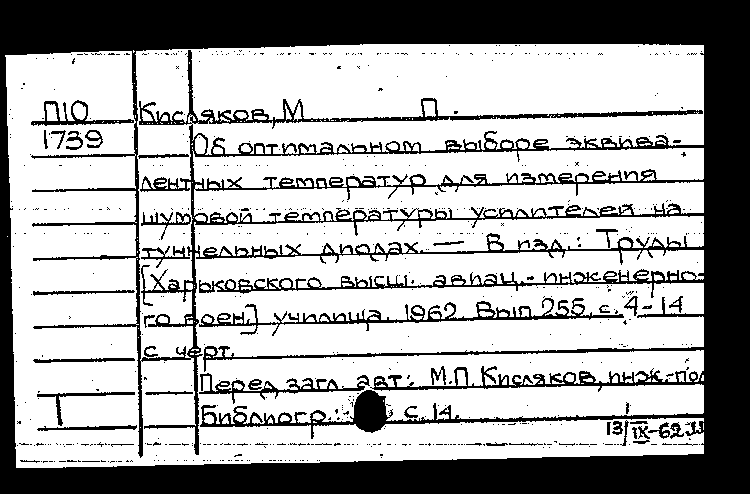 П10 Кисляков, М П.
1739 Об оптимальном выборе эквива-
лентных температур для измерения
шумовой температуры усилителей на
туннельных диодах. — В изд.: Труды
[Харьковского высш. авиац.-инженерно-
го воен.] училища. 1962. Вып. 255, с. 4-14
с черт.
Перед загл. авт.: М.П. Кисляков, инж.-пол
1 Библиогр.: с. 14.
13/IX-62